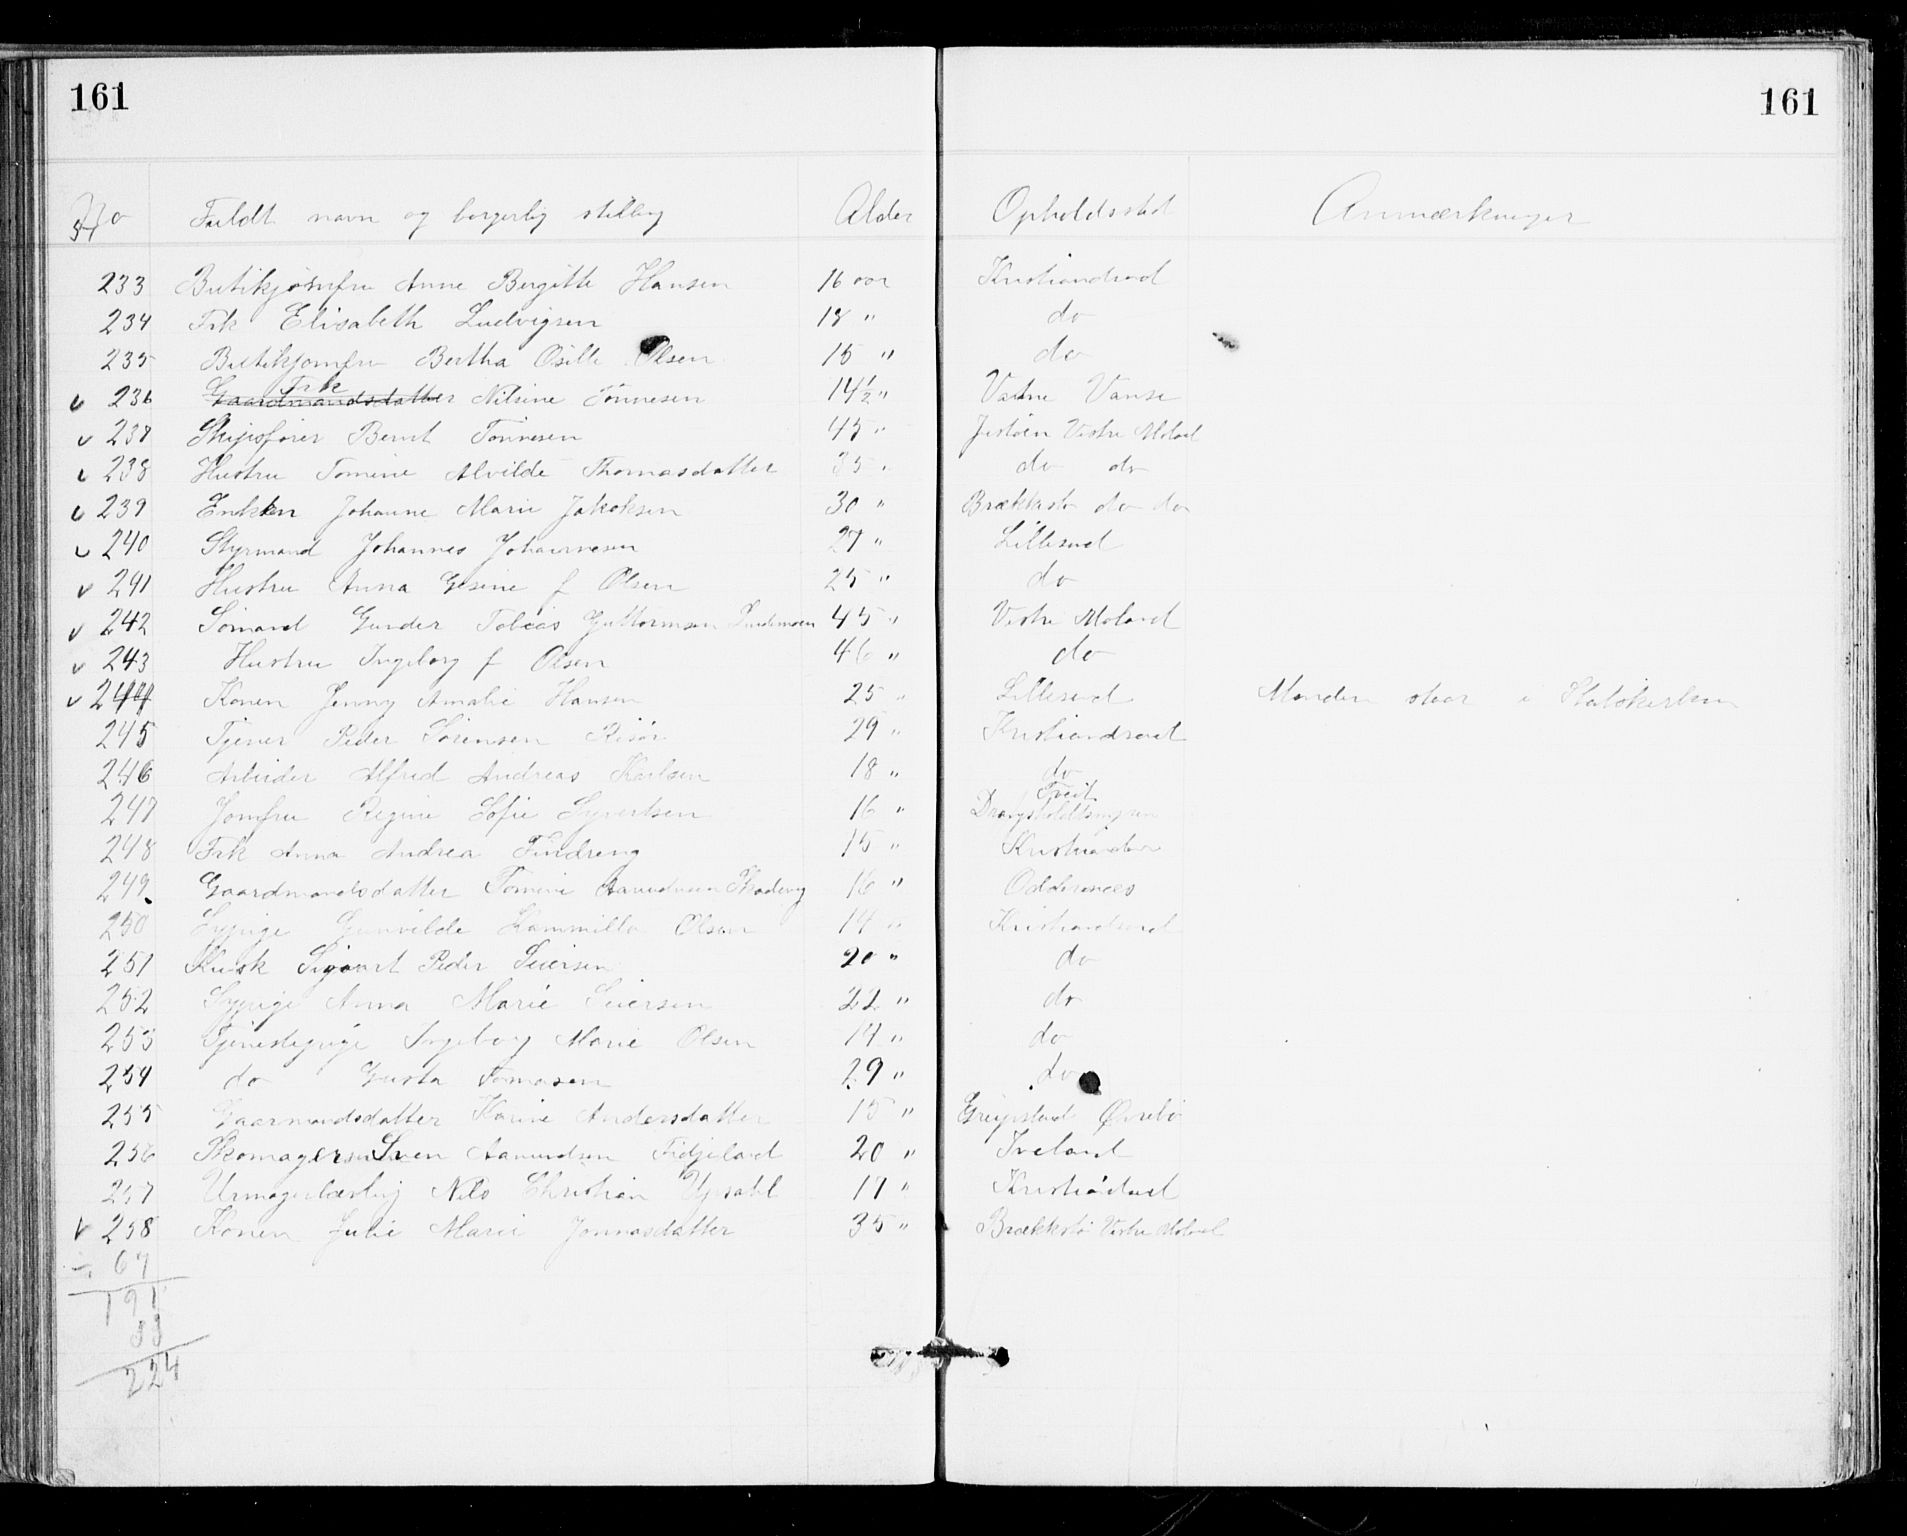 161 161
No Fuldt navn og borgerlig stilling Alder Opholdssted Anmærkninger
233 Butikjomfru Anne Bergitte Hansen 16 aar Kristiandsand
234 Frk Elisabeth Ludvigsen 18 " do
235 Butikjomfru Bertha Osille Olsen 15 " do
Frk
v 236 Gaardmandsdatter Nilsine Tönnesen 14½ " Vatne Vanse
v 237 Skipsförer Bernt Tönnesen 45 " Justöen Vestre Moland
v 238 Hustru Tomine Alvilde Thomasdatter 35 " do do
v 239 Enken Johanne Marie Jakobsen 30 " Brækkestö do do
v 240 Styrmand Johannes Johannesen 27 " Lillesand
v 241 Hustru Anna Gesine f Olsen 25 " do
v 242 Sömand Gunder Tobias Guttormsen 45 " Vestre Moland
v 243 Hustru Ingeborg f Olsen 46 " do
v 244 Konen Jenny Amalie Hansen 25 " Lillesand Manden staar i Statskirken
245 Tjener Peder Sörensen Risör 29 " Kristiandsand
246 Arbeider Alfred Andreas Karlsen 18 " do
Tveit
247 Jomfru Regine Sofie Syvertsen 16 " Drangsholdtsmyren
248 Frk Anna Andrea Findreng 15 "
249 Gaardmandsdatter Tomine Aanundsen 16 " Oddernæs
250 Sypige Gunvilde Kammilla Olsen 14 " Kristiandsand
251 Kusk Sigvart Peder Seiersen 20 " do
252 Sypige Anna Marie Seiersen 22 " do
253 Tjenestepige Ingeborg Marie Olsen 14 " do
254 do Gusta Tomasen 29 " do
255 Gaarmandsdatter Karine Andersdatter 15 " Greipstad Övrebö
256 Skomagersv Sven Aanundsen Fidjeland 20 " Iveland
257 Urmagerlærling Nils Christian Upsahl 17 "
v 258 Konen Julie Marie Jonnasdatter 35 " Brækkstö Vestre Moland
÷ 67
191
33
224